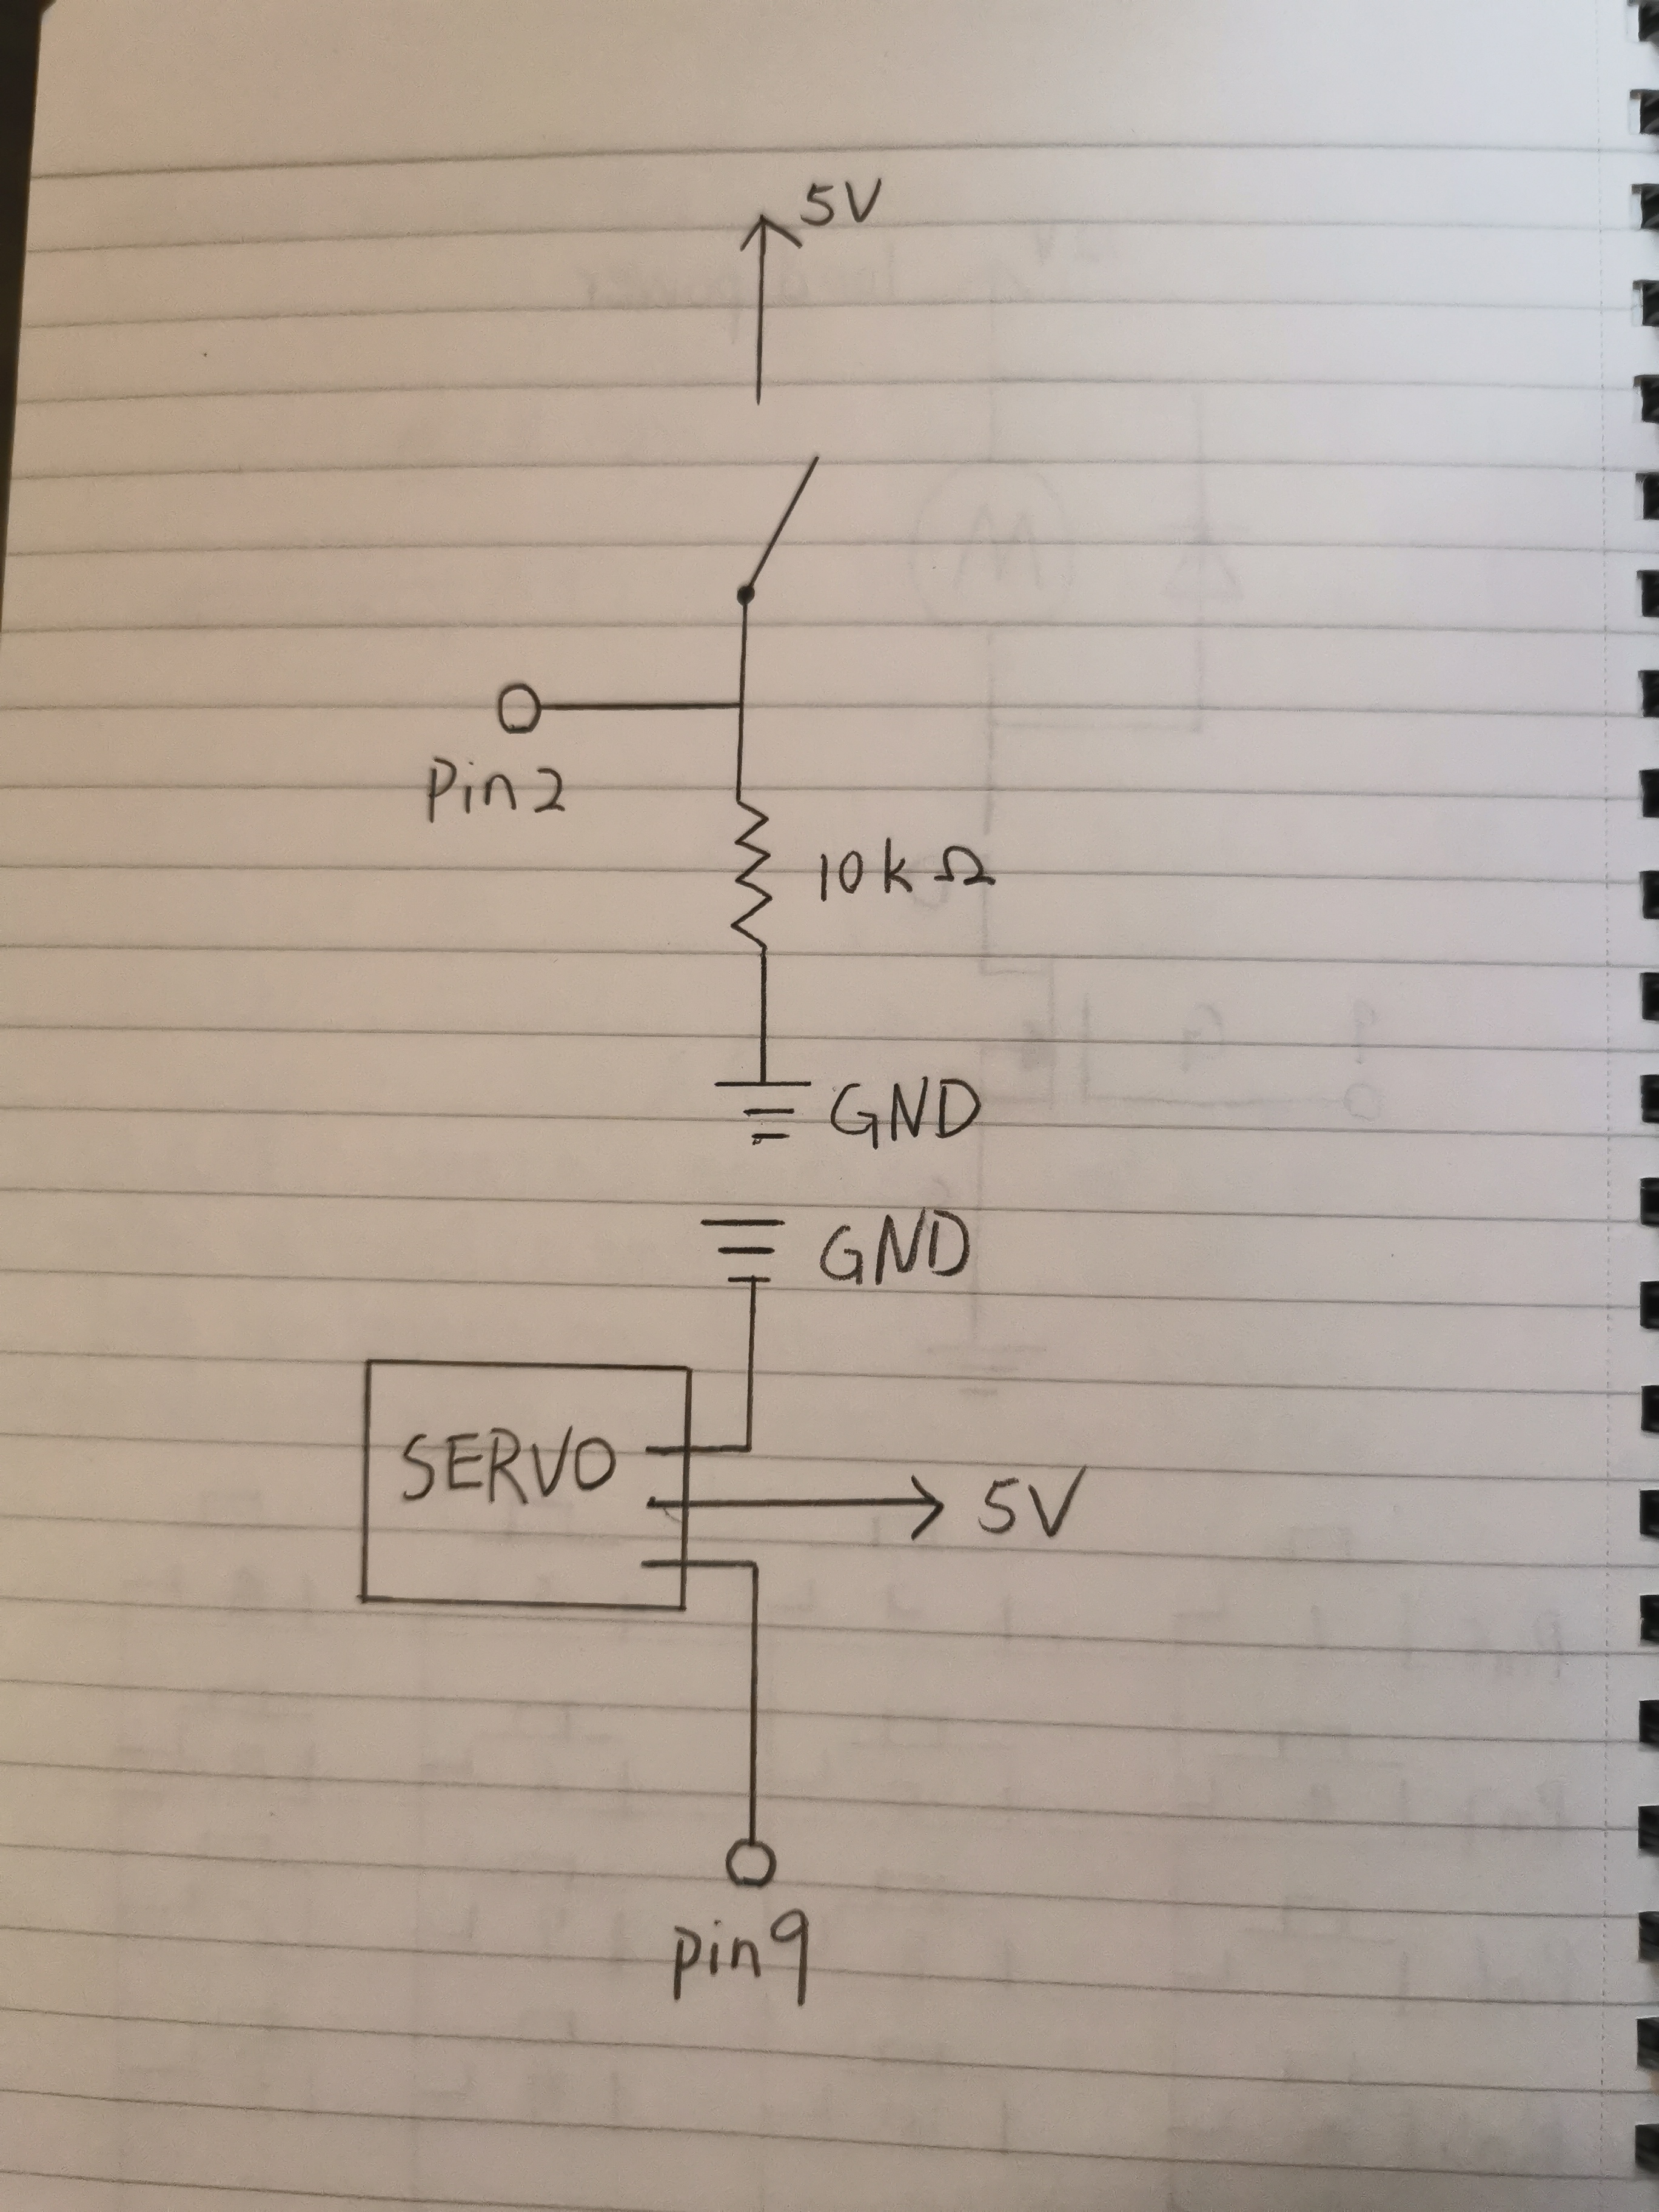 5V
Pin2
10kΩ
GND
GND
SERVO
5V
pin9